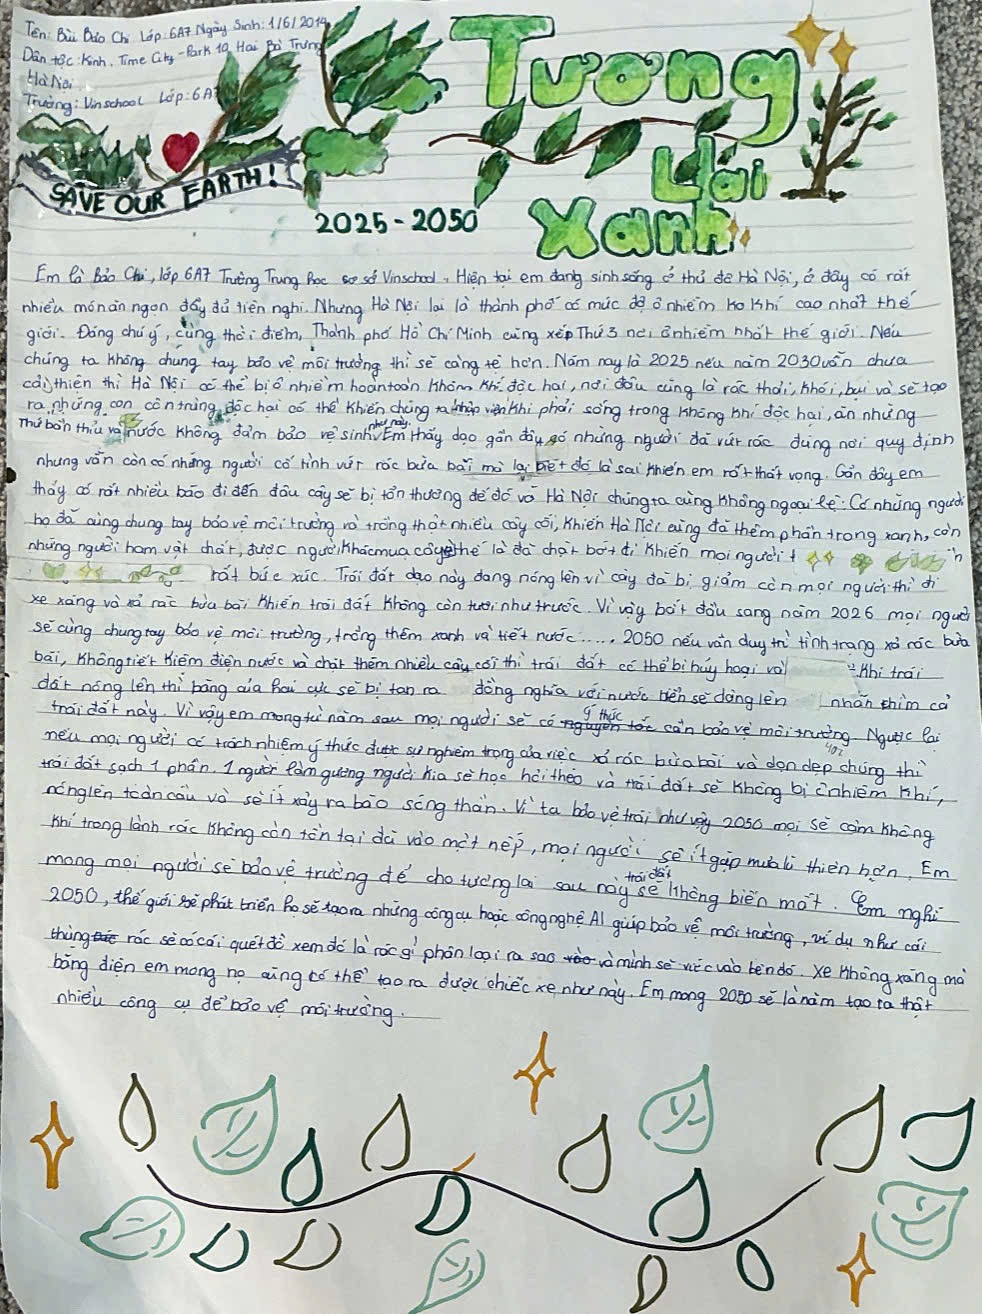 Tên: Bùi Bảo Chi Lớp: 6A7 Ngày Sinh: 1/6/2014
Dân tộc: Kinh. Time City - Park 10 Hai Bà Trưng
Hà Nội
Trường: Vinschool Lớp: 6A7
SAVE OUR EARTH!
Tương
Lai
Xanh
2025 - 2050
Em là Bảo Chi, lớp 6A7 Trường Trung học cơ sở Vinschool. Hiện tại em đang sinh sống ở thủ đô Hà Nội, ở đây có rất
nhiều món ăn ngon đầy đủ tiện nghi. Nhưng Hà Nội lại là thành phố có mức độ ô nhiễm ko khí cao nhất thế
giới. Đáng chú ý, cùng thời điểm, Thành phố Hồ Chí Minh cũng xếp Thứ 3 nơi ô nhiễm nhất thế giới. Nếu
chúng ta không chung tay bảo vệ môi trường thì sẽ càng tệ hơn. Năm nay là 2025 nếu năm 2030 vẫn chưa
cải thiện thì Hà Nội có thể bị ô nhiễm hoàn toàn không khí độc hại, nơi đâu cũng là rác thải, khói, bụi và sẽ tạo
ra những con côn trùng độc hại có thể khiến chúng ta nhập viện khi phải sống trong không khí độc hại, ăn những
Thứ bẩn thỉu và nước không đảm bảo vệ sinh như này. Em thấy dạo gần đây có những người đã vứt rác đúng nơi quy định
nhưng vẫn còn có những người cố tình vứt rác bừa bãi mà lại biết đó là sai khiến em rất thất vọng. Gần đây em
thấy có rất nhiều bão đi đến đâu cây sẽ bị tổn thương đế đó và Hà Nội chúng ta cũng không ngoại lệ. Có những người
họ đã cùng chung tay bảo vệ môi trường và trồng thật nhiều cây cối, khiến Hà Nội cũng đã thêm phần trong xanh, còn
những người ham vật chất, được người khác mua cây thế là đã chặt bớt đi khiến mọi người
rất bức xúc. Trái đất dạo này đang nóng lên vì cây đã bị giảm còn mọi người thì đi
xe xăng và xả rác bừa bãi khiến trái đất không còn tươi như trước. Vì vậy bắt đầu sang năm 2026 mọi người
sẽ cùng chung tay bảo vệ môi trường, trồng thêm xanh và tiết nước..... 2050 nếu vẫn duy trì tình trạng xả rác bừa
bãi, không tiết kiệm điện nước và chặt thêm nhiều cây cối thì trái đất có thể bị hủy hoại và Khi trái
đất nóng lên thì băng của hai cực sẽ bị tan ra đồng nghĩa với nước biển sẽ dâng lên nhấn chìm cả
trái đất này. Vì vậy em mong từ năm sau mọi người sẽ có ý thức cần bảo vệ môi trường. Ngược lại
nếu mọi người có trách nhiệm ý thức được sự nghiêm trọng của việc xả rác bừa bãi và dọn dẹp chúng thì
trái đất sạch 1 phần. 1 người làm gương người kia sẽ học hỏi theo và trái đất sẽ không bị ô nhiễm khí,
nóng lên toàn cầu và sẽ ít xảy ra bão sóng thần. Vì ta bảo vệ trái như vậy 2050 mọi sẽ còn không
khí trong lành rác không còn tồn tại đã vào một nếp, mọi người sẽ ít gặp mưa lũ thiên hơn. Em
mong mọi người sẽ bảo vệ trường để cho tương lai sau này trái đất sẽ không biến mất. Em nghĩ
2050, thế giới sẽ phát triển họ sẽ tạo ra những công cụ hoặc công nghệ AI giúp bảo vệ môi trường, ví dụ như cái
thùng rác sẽ có cái quét để xem đó là rác gì phân loại ra sao và mình sẽ vứt vào bên đó. Xe không xăng mà
bằng điện em mong họ cũng có thể tạo ra được chiếc xe như này. Em mong 2050 sẽ là năm tạo ra thật
nhiều công cụ để bảo vệ môi trường.